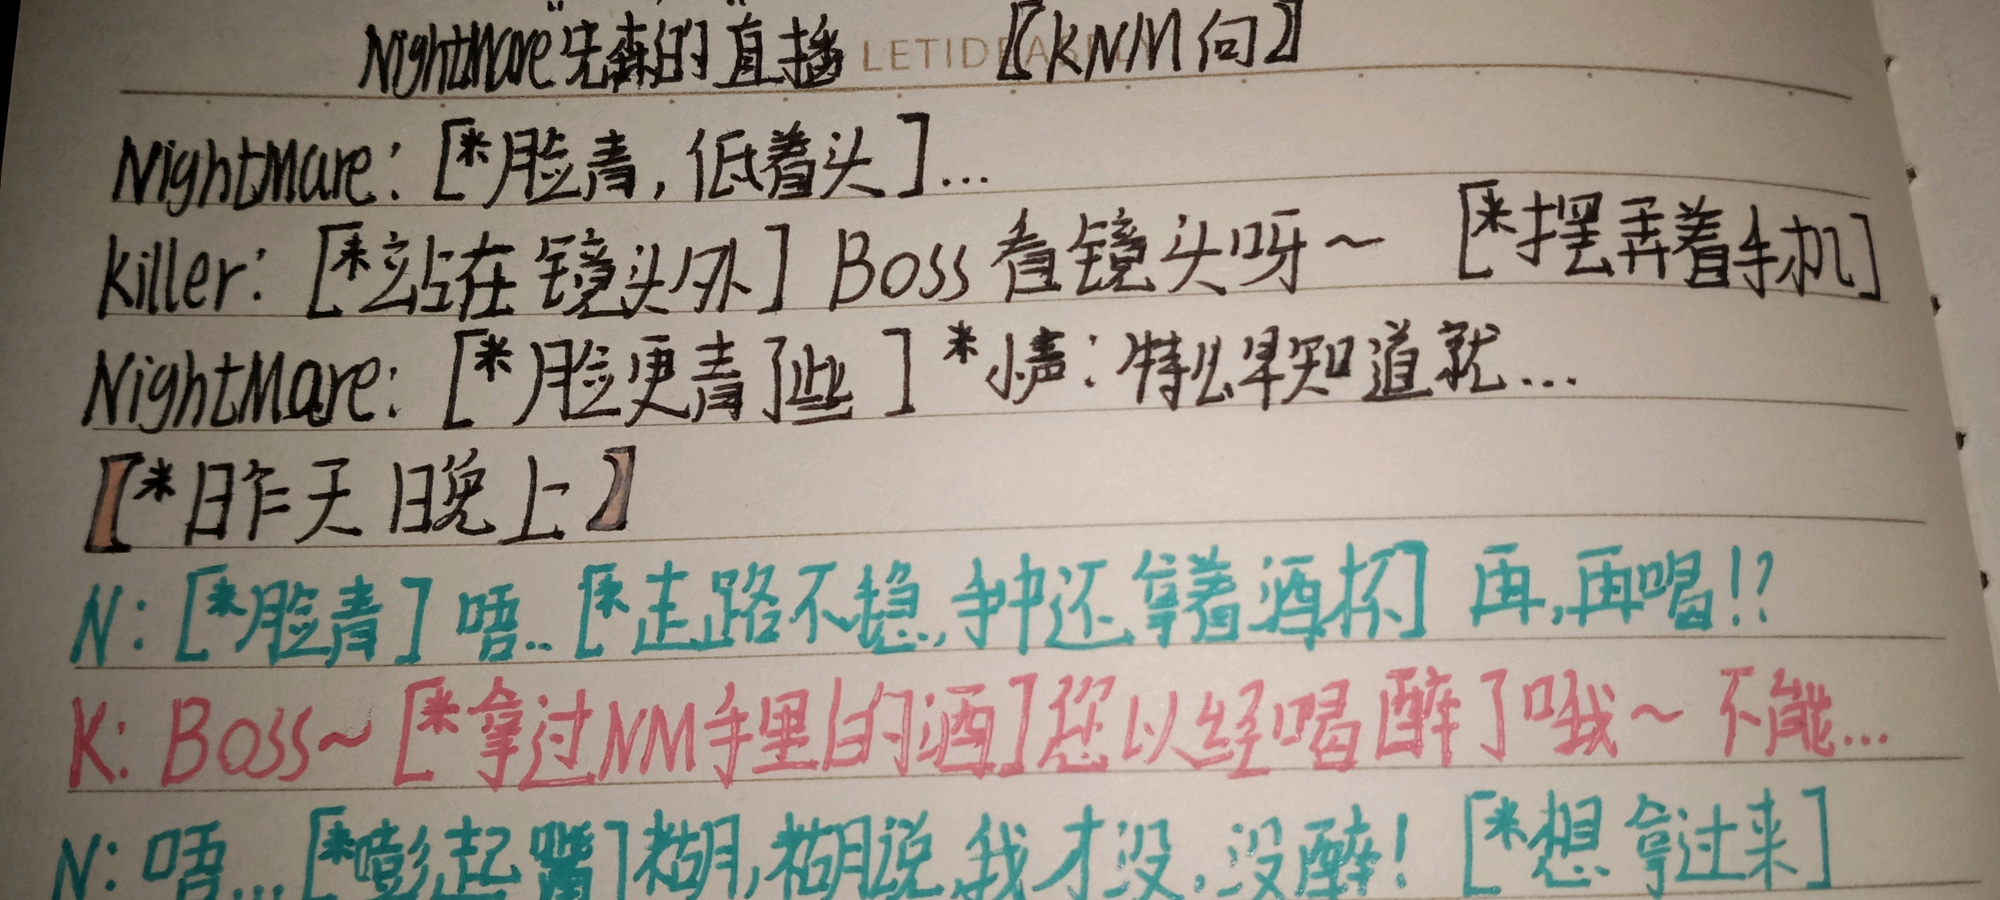 NightMare"先森的"直播 LETID 【KNM向】
NightMare: [*脸青,低着头]...
Killer: [*站在镜头外] Boss 看镜头呀~ [*摆弄着手机]
NightMare: [*脸更青了些] *小声: 特么早知道就...
【*昨天晚上】
N: [*脸青] 唔.. [*走路不稳,手中还拿着酒杯] 再,再喝!?
K: Boss~ [*拿过NM手里的酒]您以经喝醉了哦~ 不能...
N: 唔... [*嘭起嘴]糊,糊说,我才没,没醉! [*想拿过来]